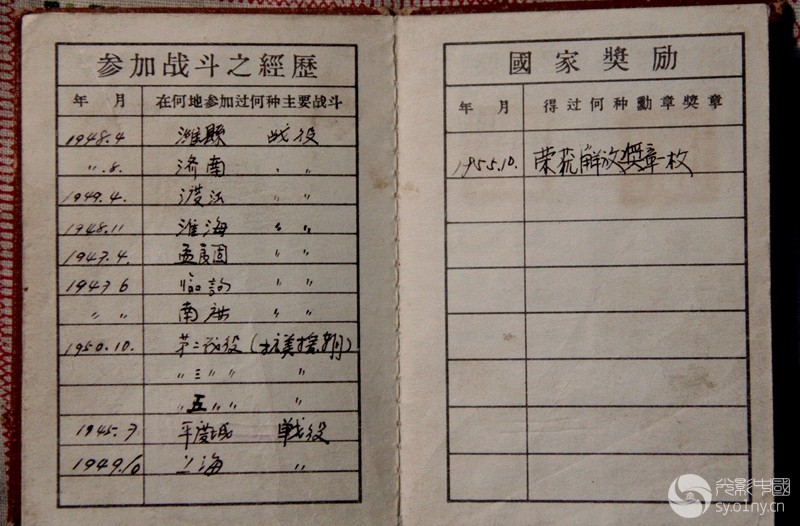 参加战斗之經歷
年 月 在何地参加过何种主要战斗
1948.4 濰縣 战役
〃.8. 济南 〃 〃
1949.4. 渡江 〃 〃
1948.11 淮海 〃 〃
1947.4. 孟良固 〃 〃
1947 6 临朐 〃 〃
〃 〃 南麻 〃 〃
1950.10. 第二战役(抗美援朝)
〃 三 〃 〃 〃
〃 五 〃 〃 〃
1945.7 平度城 戰役
1949.6 上海 〃
國家獎励
年 月 得过何种勳章獎章
1955.10. 荣获解放獎章一枚
光影中國
sy.o1ny.cn